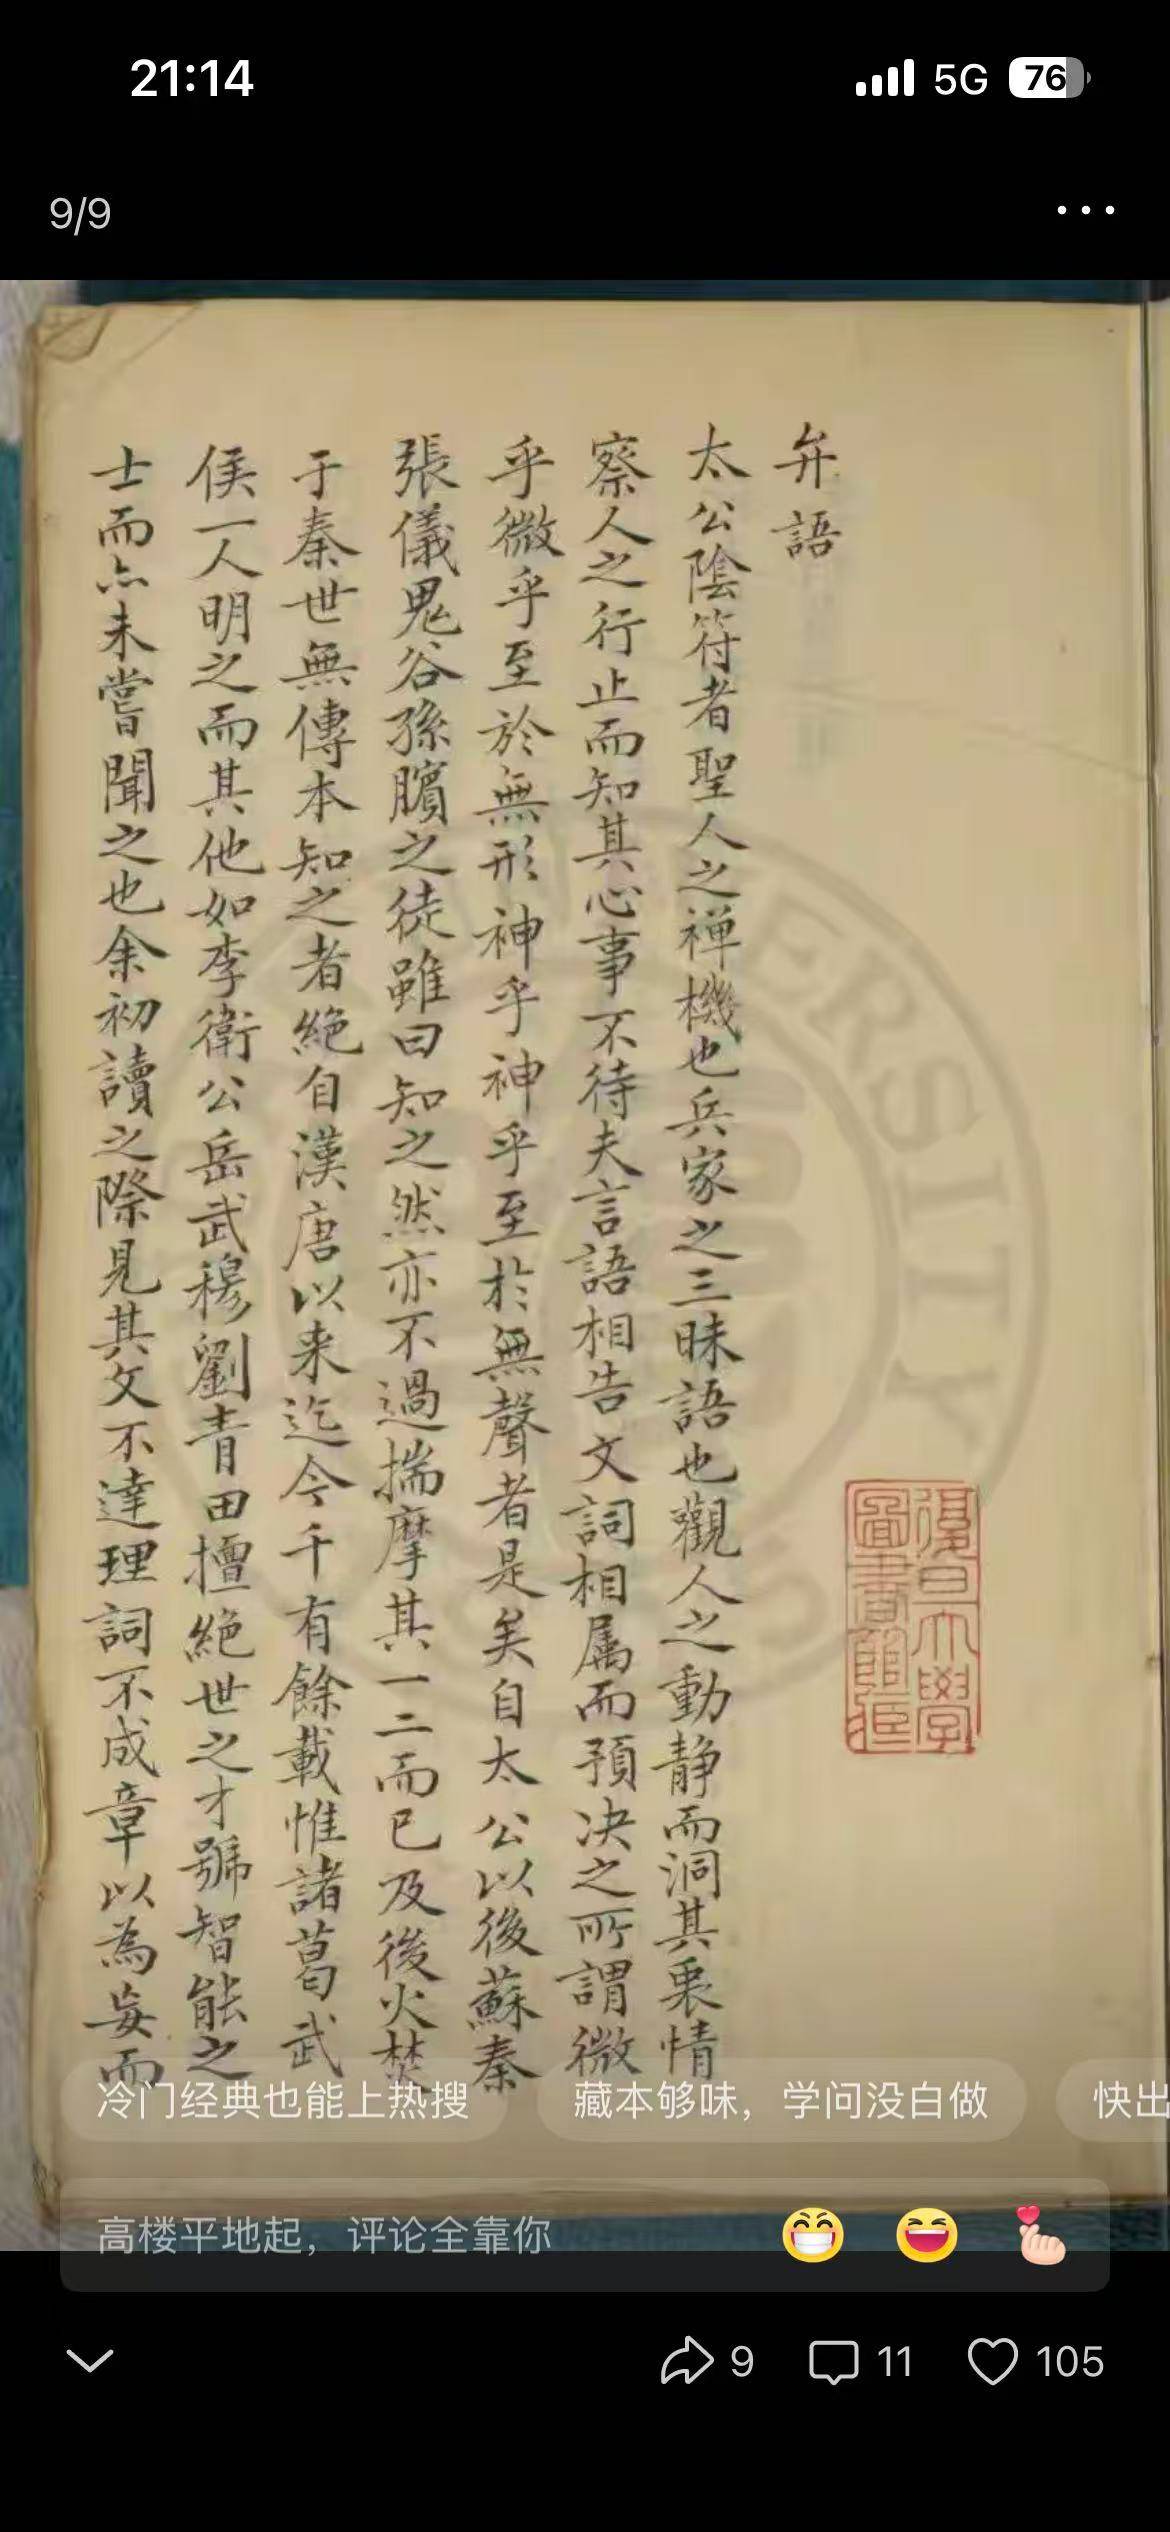 21:14
5G
76
9/9
弁語
太公陰符者聖人之禅機也兵家之三昧語也觀人之動静而洞其裏情
察人之行止而知其心事不待夫言語相告文詞相属而預决之所謂微
乎微乎至於無形神乎神乎至於無聲者是矣自太公以後蘇秦
張儀鬼谷孫臏之徒雖曰知之然亦不過揣摩其一二而已及後火焚
于秦世無傳本知之者絶自漢唐以来迄今千有餘載惟諸葛武
侯一人明之而其他如李衛公岳武穆劉青田擅絶世之才號智能之
士而亦未嘗聞之也余初讀之際見其文不達理詞不成章以為妄而
復旦大學
圖書館藏
UNIVERSITY
冷门经典也能上热搜
藏本够味，学问没白做
快出
高楼平地起，评论全靠你
9
11
105